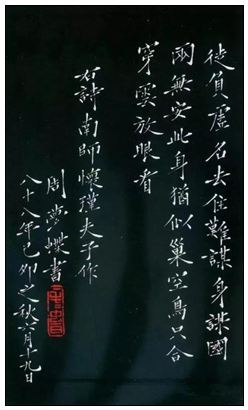 徒負虛名去住難謀身謀國
兩無安此身猶似巢空鳥只合
穿雲放眼看
右詩南師懷瑾夫子作
周夢蝶書
八十八年己卯之秋六月十九日